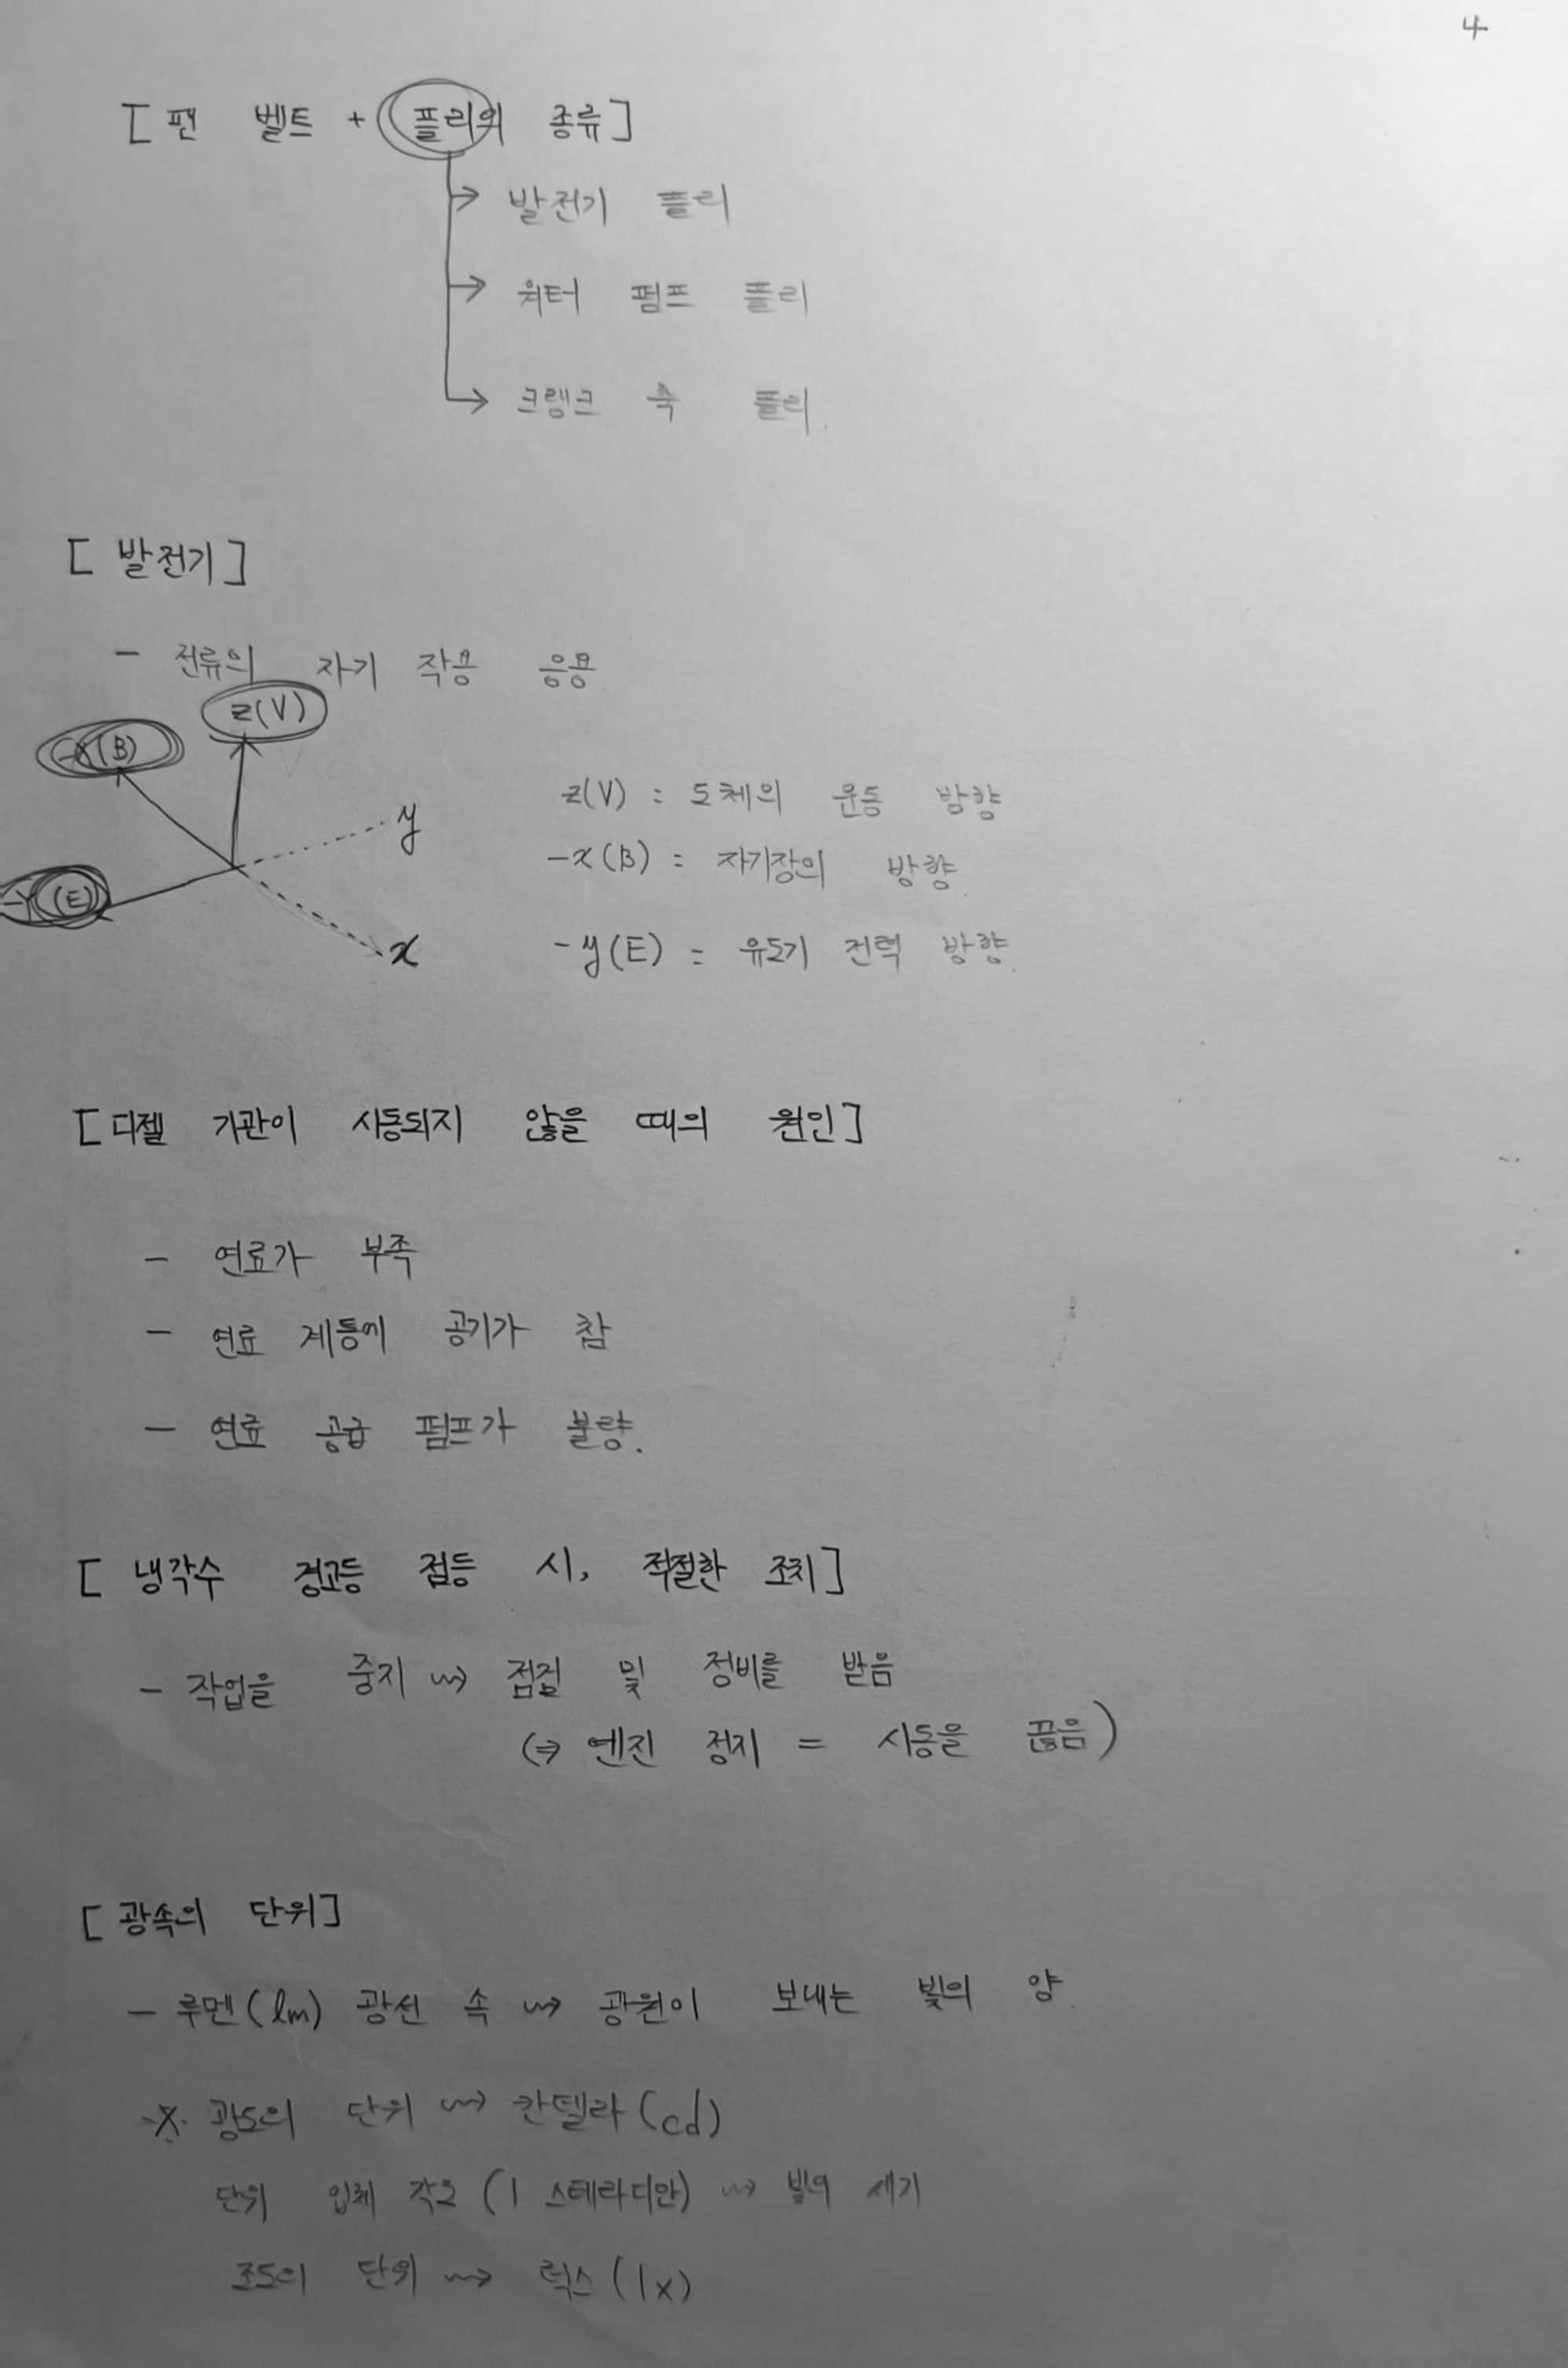 4
[팬 벨트 + 플리의 종류]
→ 발전기 플리
→ 워터 펌프 플리
→ 크랭크 축 플리.
[발전기]
- 전류의 자기 작용 응용
z(V)
-x(B)
y
-y(E)
x
z(V) : 도체의 운동 방향
-x(B) : 자기장의 방향.
-y(E) : 유도기 전력 방향.
[디젤 기관이 시동되지 않을 때의 원인]
- 연료가 부족
- 연료 계통에 공기가 참
- 연료 공급 펌프가 불량.
[냉각수 경고등 점등 시, 적절한 조치]
- 작업을 중지 ⇝ 점검 및 정비를 받음
(⇒ 엔진 정지 = 시동을 끊음)
[광속의 단위]
- 루멘(lm) 광선 속 ⇝ 광원이 보내는 빛의 양.
※ 광도의 단위 ⇝ 칸델라(cd)
단위 입체 각으 (1 스테라디안) ⇝ 빛의 세기
조도의 단위 ⇝ 럭스(lx)